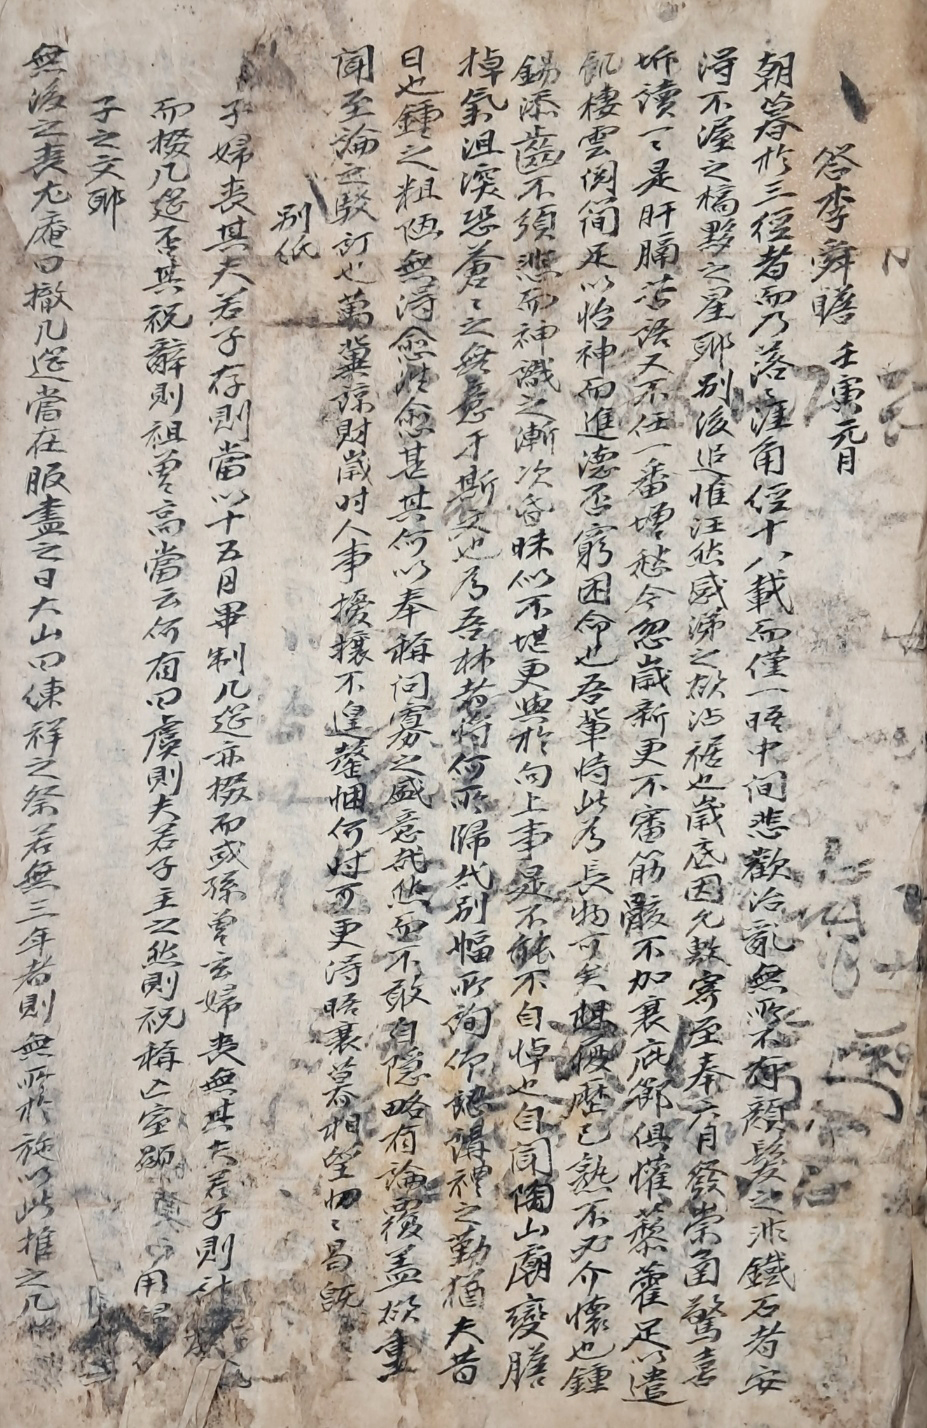 答李舜瞻 壬寅元月
朝暮於三徑者而乃落之涯角經十八載而僅一晤中間悲歡治亂無所不有顔髮之非鐵石者安
得不渥之槁黟之星耶別後追惟汪然感涕之欲沾裾也歲底因允敎寄至奉六月發崇函驚喜
坼讀々是肝膈苦語又不任一番增愁今忽歲新更不審筋骸不加衰庇節俱懽藜藿足以遣
飢棲雲閣簡足以怡神而進德否窮困命也吾輩恃此爲長物可矣想履歷已熟不必介懷也鍾
錫添齒不須悲而神識之漸次昏昧似不堪更與於向上事是不能不自悼也自聞陶山廟變膽
掉氣沮深恐蒼々之無意于斯文也爲吾林者將何所歸哉別幅所詢仰認講禮之勤猶夫昔
日也鍾之粗陋無得愈往愈甚其何以奉稱问寡之盛意哉然而不敢自隱略有論覆盖欲重
聞至論而駁訂也萬冀諒財歲时人事擾攘不遑罄悃何时可更得晤衰暮相望忉々曷旣
別紙
子婦喪其夫若子存則當以十五月畢制几筵亦掇而或孫曾玄婦喪無其夫若子則計
而掇几筵否其祝辭則祖曾高當云何有曰虞則夫若子主之然則祝稱亡室顯 用
子之文耶
無後之喪尤庵曰撤几筵當在服盡之日大山曰練祥之祭若無三年者則無所於施以此推之几